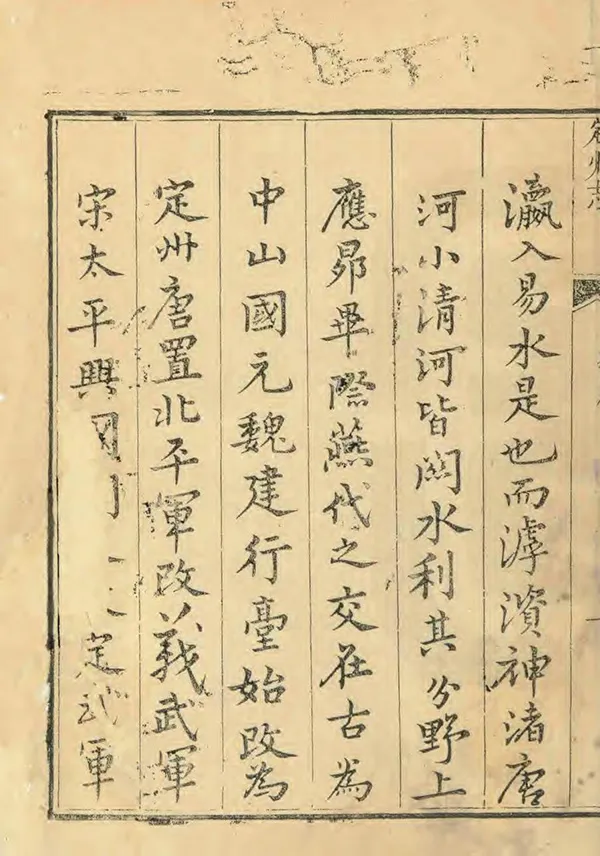 定州志
瀛入易水是也而滹濱神渚唐
河小清河皆關水利其分野上
應昴畢際燕代之交在古為
中山國元魏建行臺始改為
定州唐置北平軍改義武軍
宋太平興國 定武軍